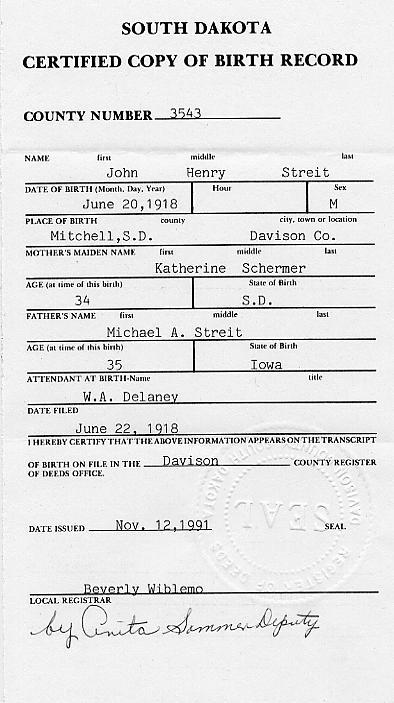 SOUTH DAKOTA
CERTIFIED COPY OF BIRTH RECORD
COUNTY NUMBER 3543
NAME first middle last
John Henry Streit
DATE OF BIRTH (Month, Day, Year) Hour Sex
June 20,1918 M
PLACE OF BIRTH county city, town or location
Mitchell,S.D. Davison Co.
MOTHER'S MAIDEN NAME first middle last
Katherine Schermer
AGE (at time of this birth) State of Birth
34 S.D.
FATHER'S NAME first middle last
Michael A. Streit
AGE (at time of this birth) State of Birth
35 Iowa
ATTENDANT AT BIRTH-Name title
W.A. Delaney
DATE FILED
June 22, 1918
I HEREBY CERTIFY THAT THE ABOVE INFORMATION APPEARS ON THE TRANSCRIPT
OF BIRTH ON FILE IN THE Davison COUNTY REGISTER
OF DEEDS OFFICE.
DATE ISSUED Nov. 12,1991 SEAL
SEAL
REGISTER OF DEEDS
Beverly Wiblemo
LOCAL REGISTRAR
by Anita Sommer Deputy